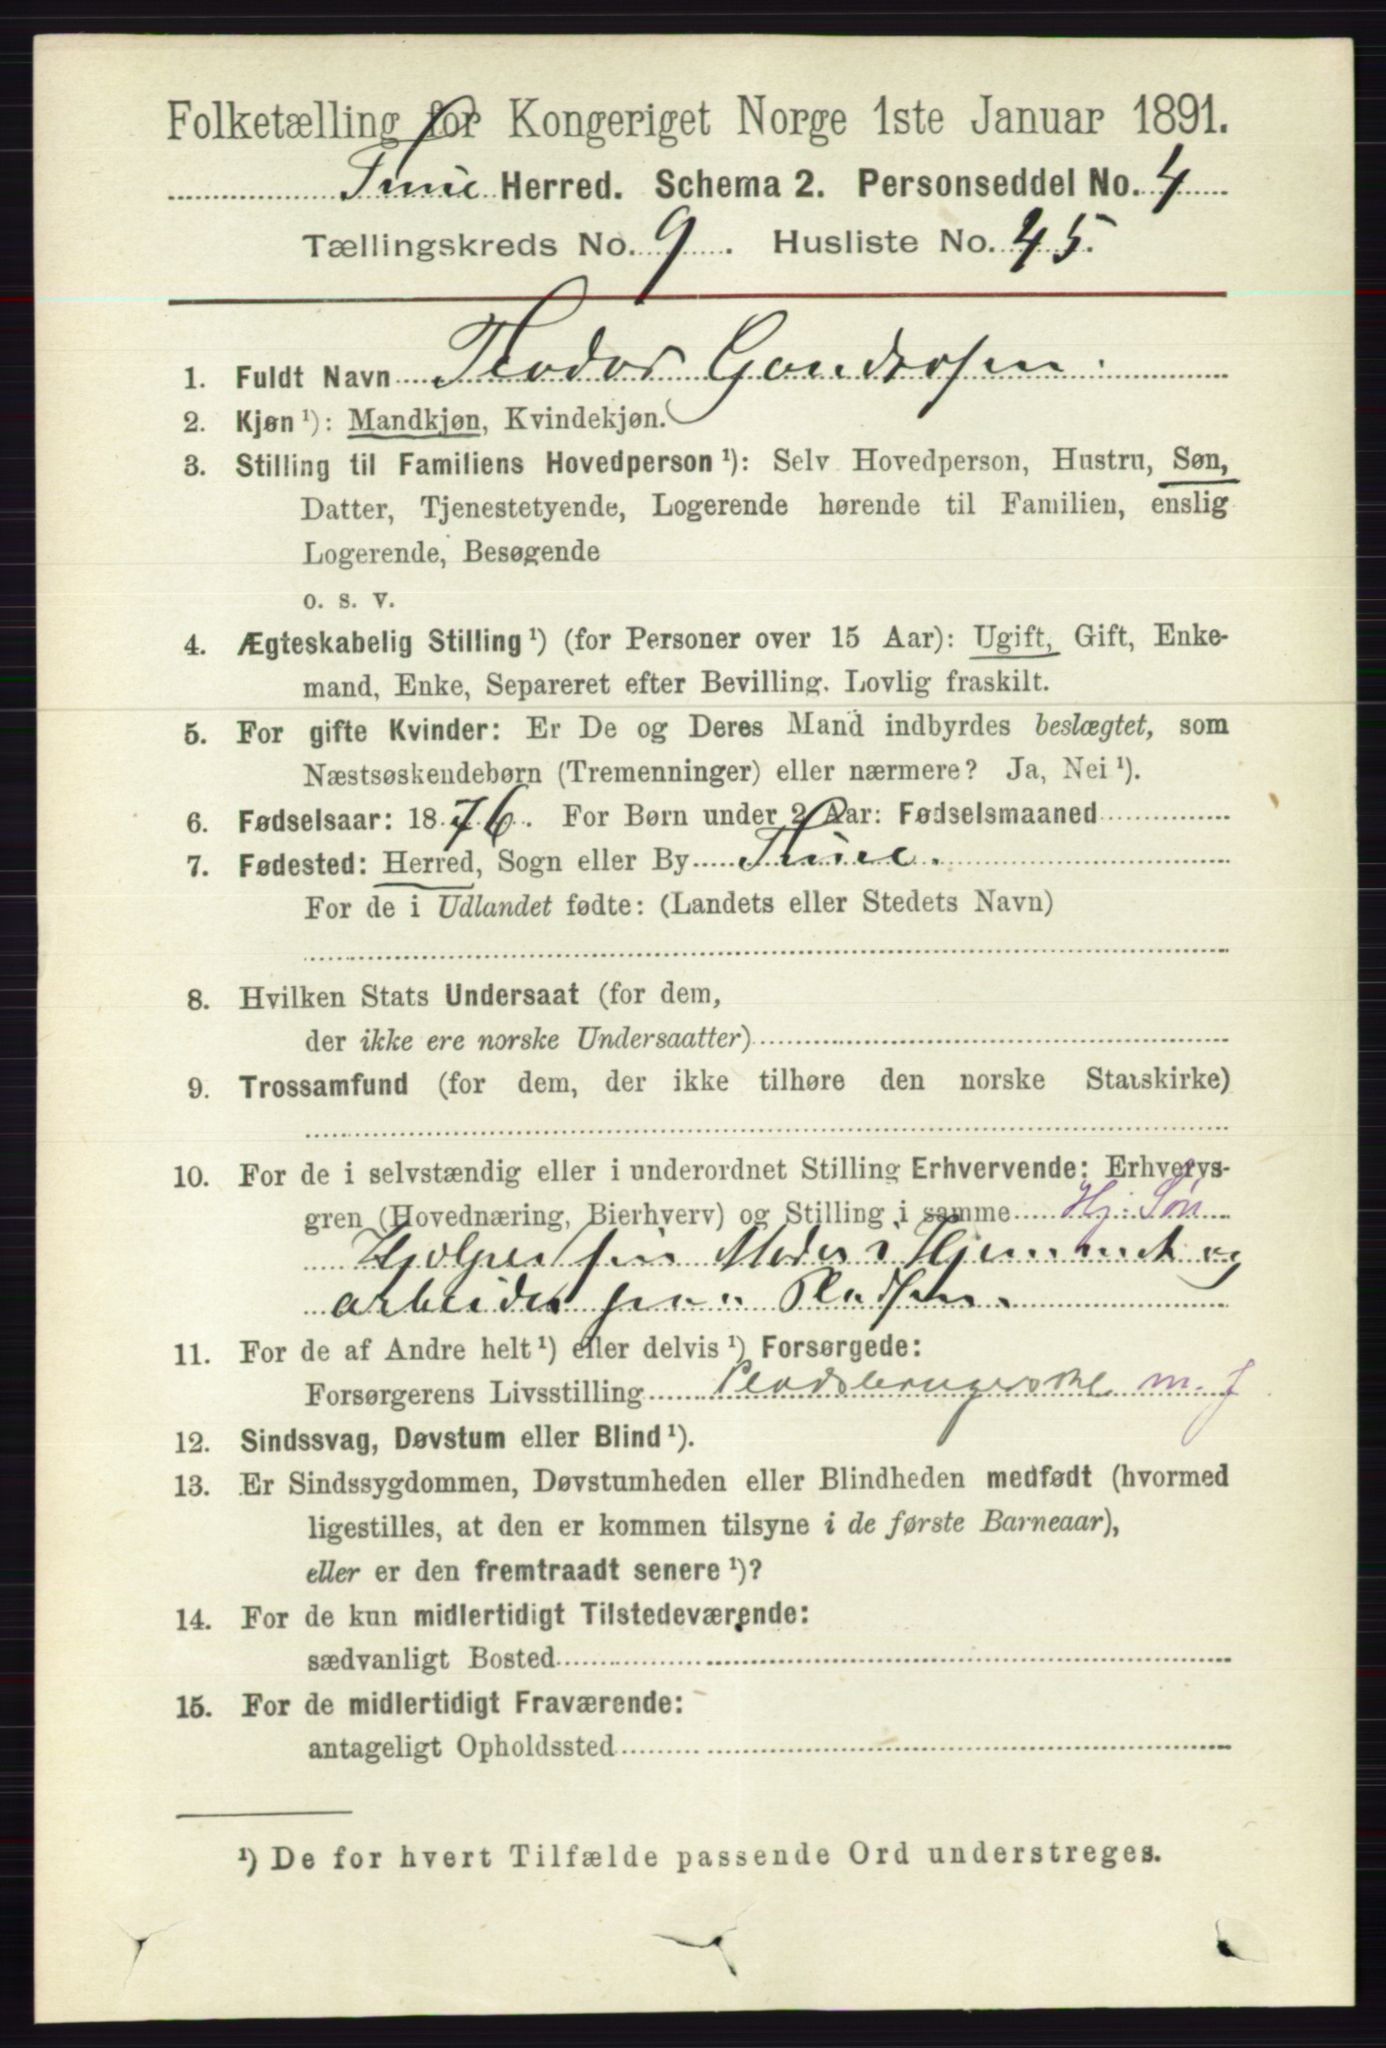 Folketælling for Kongeriget Norge 1ste Januar 1891.
Tune Herred. Schema 2. Personseddel No. 4
Tællingskreds No. 9. Husliste No. 45.
1. Fuldt Navn Theodor
2. Kjøn ¹): Mandkjøn, Kvindekjøn.
3. Stilling til Familiens Hovedperson ¹): Selv Hovedperson, Hustru, Søn,
Datter, Tjenestetyende, Logerende hørende til Familien, enslig
Logerende, Besøgende
o. s. v.
4. Ægteskabelig Stilling ¹) (for Personer over 15 Aar): Ugift, Gift, Enke-
mand, Enke, Separeret efter Bevilling. Lovlig fraskilt.
5. For gifte Kvinder: Er De og Deres Mand indbyrdes beslægtet, som
Næstsøskendebørn (Tremenninger) eller nærmere? Ja, Nei ¹).
6. Fødselsaar: 1876. For Børn under 2 Aar: Fødselsmaaned
7. Fødested: Herred, Sogn eller By Tune.
For de i Udlandet fødte: (Landets eller Stedets Navn)
8. Hvilken Stats Undersaat (for dem,
der ikke ere norske Undersaatter)
9. Trossamfund (for dem, der ikke tilhøre den norske Statskirke)
10. For de i selvstændig eller i underordnet Stilling Erhvervende: Erhvervs-
gren (Hovednæring, Bierhverv) og Stilling i samme Hj. Søn
Hjælper sin Moder i Hjemmet og
arbeider paa Pladsen.
11. For de af Andre helt ¹) eller delvis ¹) Forsørgede:
Forsørgerens Livsstilling Pladsbrugerske m. J
12. Sindssvag, Døvstum eller Blind ¹).
13. Er Sindssygdommen, Døvstumheden eller Blindheden medfødt (hvormed
ligestilles, at den er kommen tilsyne i de første Barneaar),
eller er den fremtraadt senere ¹)?
14. For de kun midlertidigt Tilstedeværende:
sædvanligt Bosted
15. For de midlertidigt Fraværende:
antageligt Opholdssted
¹) De for hvert Tilfælde passende Ord understreges.